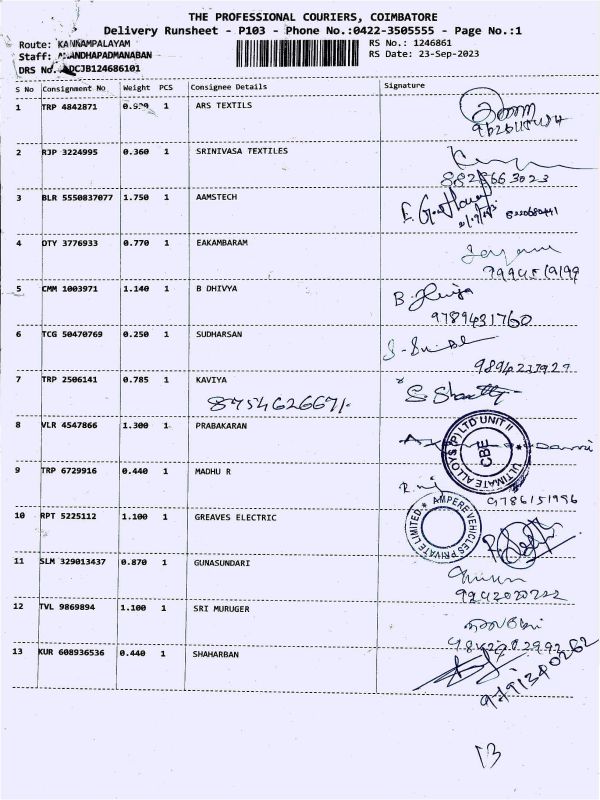 THE PROFESSIONAL COURIERS, COIMBATORE
Delivery Runsheet - P103 - Phone No.:0422-3505555 - Page No.:1
Route: KANNAMPALAYAM
Staff: ANANDHAPADMANABAN
DRS No. ADCJB124686101
RS No.: 1246861
RS Date: 23-Sep-2023
S No Consignment No Weight PCS Consignee Details Signature
1 TRP 4842871 0.990 1 ARS TEXTILS
2 RJP 3224995 0.360 1 SRINIVASA TEXTILES
8828663023
3 BLR 5550837077 1.750 1 AAMSTECH
4 OTY 3776933 0.770 1 EAKAMBARAM
9994519199
5 CMM 1003971 1.140 1 B DHIVYA
9789431760
6 TCG 50470769 0.250 1 SUDHARSAN
9894237927
7 TRP 2506141 0.785 1 KAVIYA
8754626671.
8 VLR 4547866 1.300 1 PRABAKARAN
ULTIMATE ALLOYS (P) LTD UNIT II
CBE
9 TRP 6729916 0.440 1 MADHU R
9786151996
10 RPT 5225112 1.100 1 GREAVES ELECTRIC
AMPERE VEHICLES PRIVATE LIMITED
11 SLM 329013437 0.870 1 GUNASUNDARI
12 TVL 9869894 1.100 1 SRI MURUGER
13 KUR 608936536 0.440 1 SHAHARBAN
9791340262
13